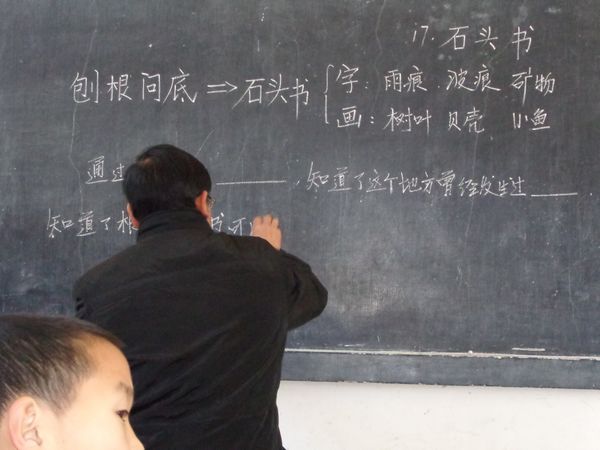 17. 石头书
刨根问底⇒石头书{字：雨痕 波痕 矿物
画：树叶 贝壳 小鱼
通过 ______，知道了这个地方曾经发生过____
知道了 书不